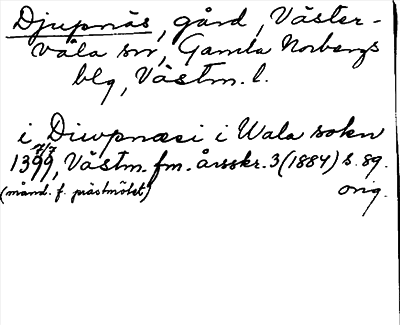 Djupnäs, gård, Väster-
våla sn, Gamla Norbergs
blg, Västm. l.
i Diwpnæsi i Wala sokn
1399 7/7, Västm. fm. årsskr. 3 (1884) s. 89.
(månd. f. prästmötet) orig.